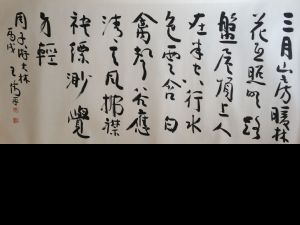 三月山房暖林
花互照明路
盤層頂上人
在半空行水
色雲含白
禽聲谷應
清天風拂襟
袂縹緲覺
身輕
周子大林
丙戌